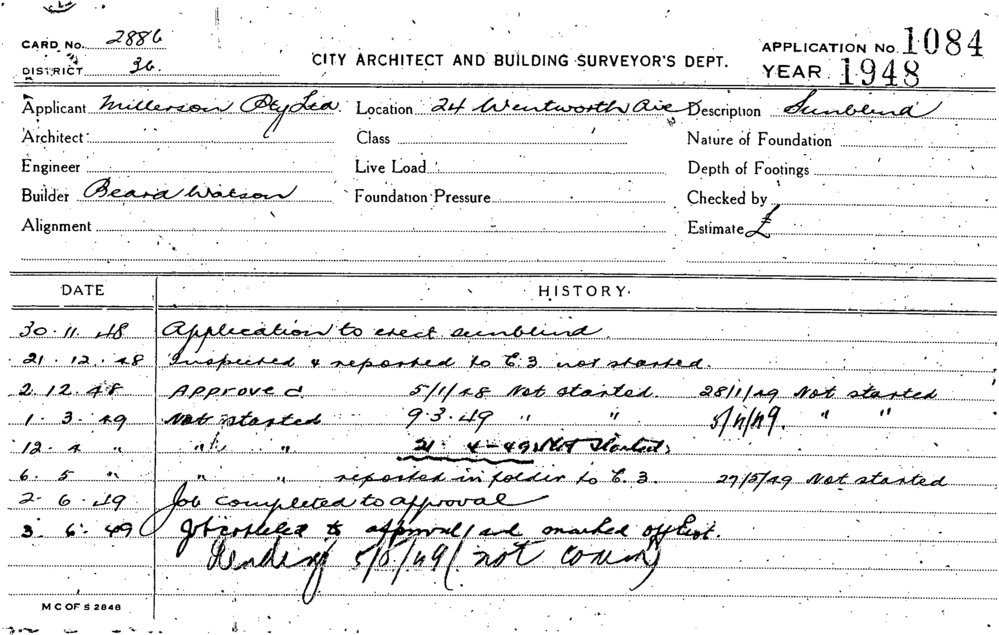 CARD No. 2886
DISTRICT 36.
CITY ARCHITECT AND BUILDING SURVEYOR'S DEPT.
APPLICATION No. 1084
YEAR 1948
Applicant Millerson Pty Ltd. Location 24 Wentworth Ave Description Sunblind
Architect Class Nature of Foundation
Engineer Live Load Depth of Footings
Builder Beard Watson Foundation Pressure Checked by
Alignment Estimate £
DATE HISTORY.
30.11.48 Application to erect sunblind
21.12.48 Inspected & reported to E.3 not started.
2.12.48 Approved 5/1/48 Not started. 28/1/49 Not started
1.3.49 Not started 9.3.49 " " 5/4/49. " "
12.4 " " " 21.4-49 Not Started.
6.5 " " " reported in folder to E.3. 27/5/49 Not started
2.6.49 Job completed to approval
3.6.49 Job completed to approval and marked off list.
Pending 5/5/49 (not comm)
M C OF S 2848